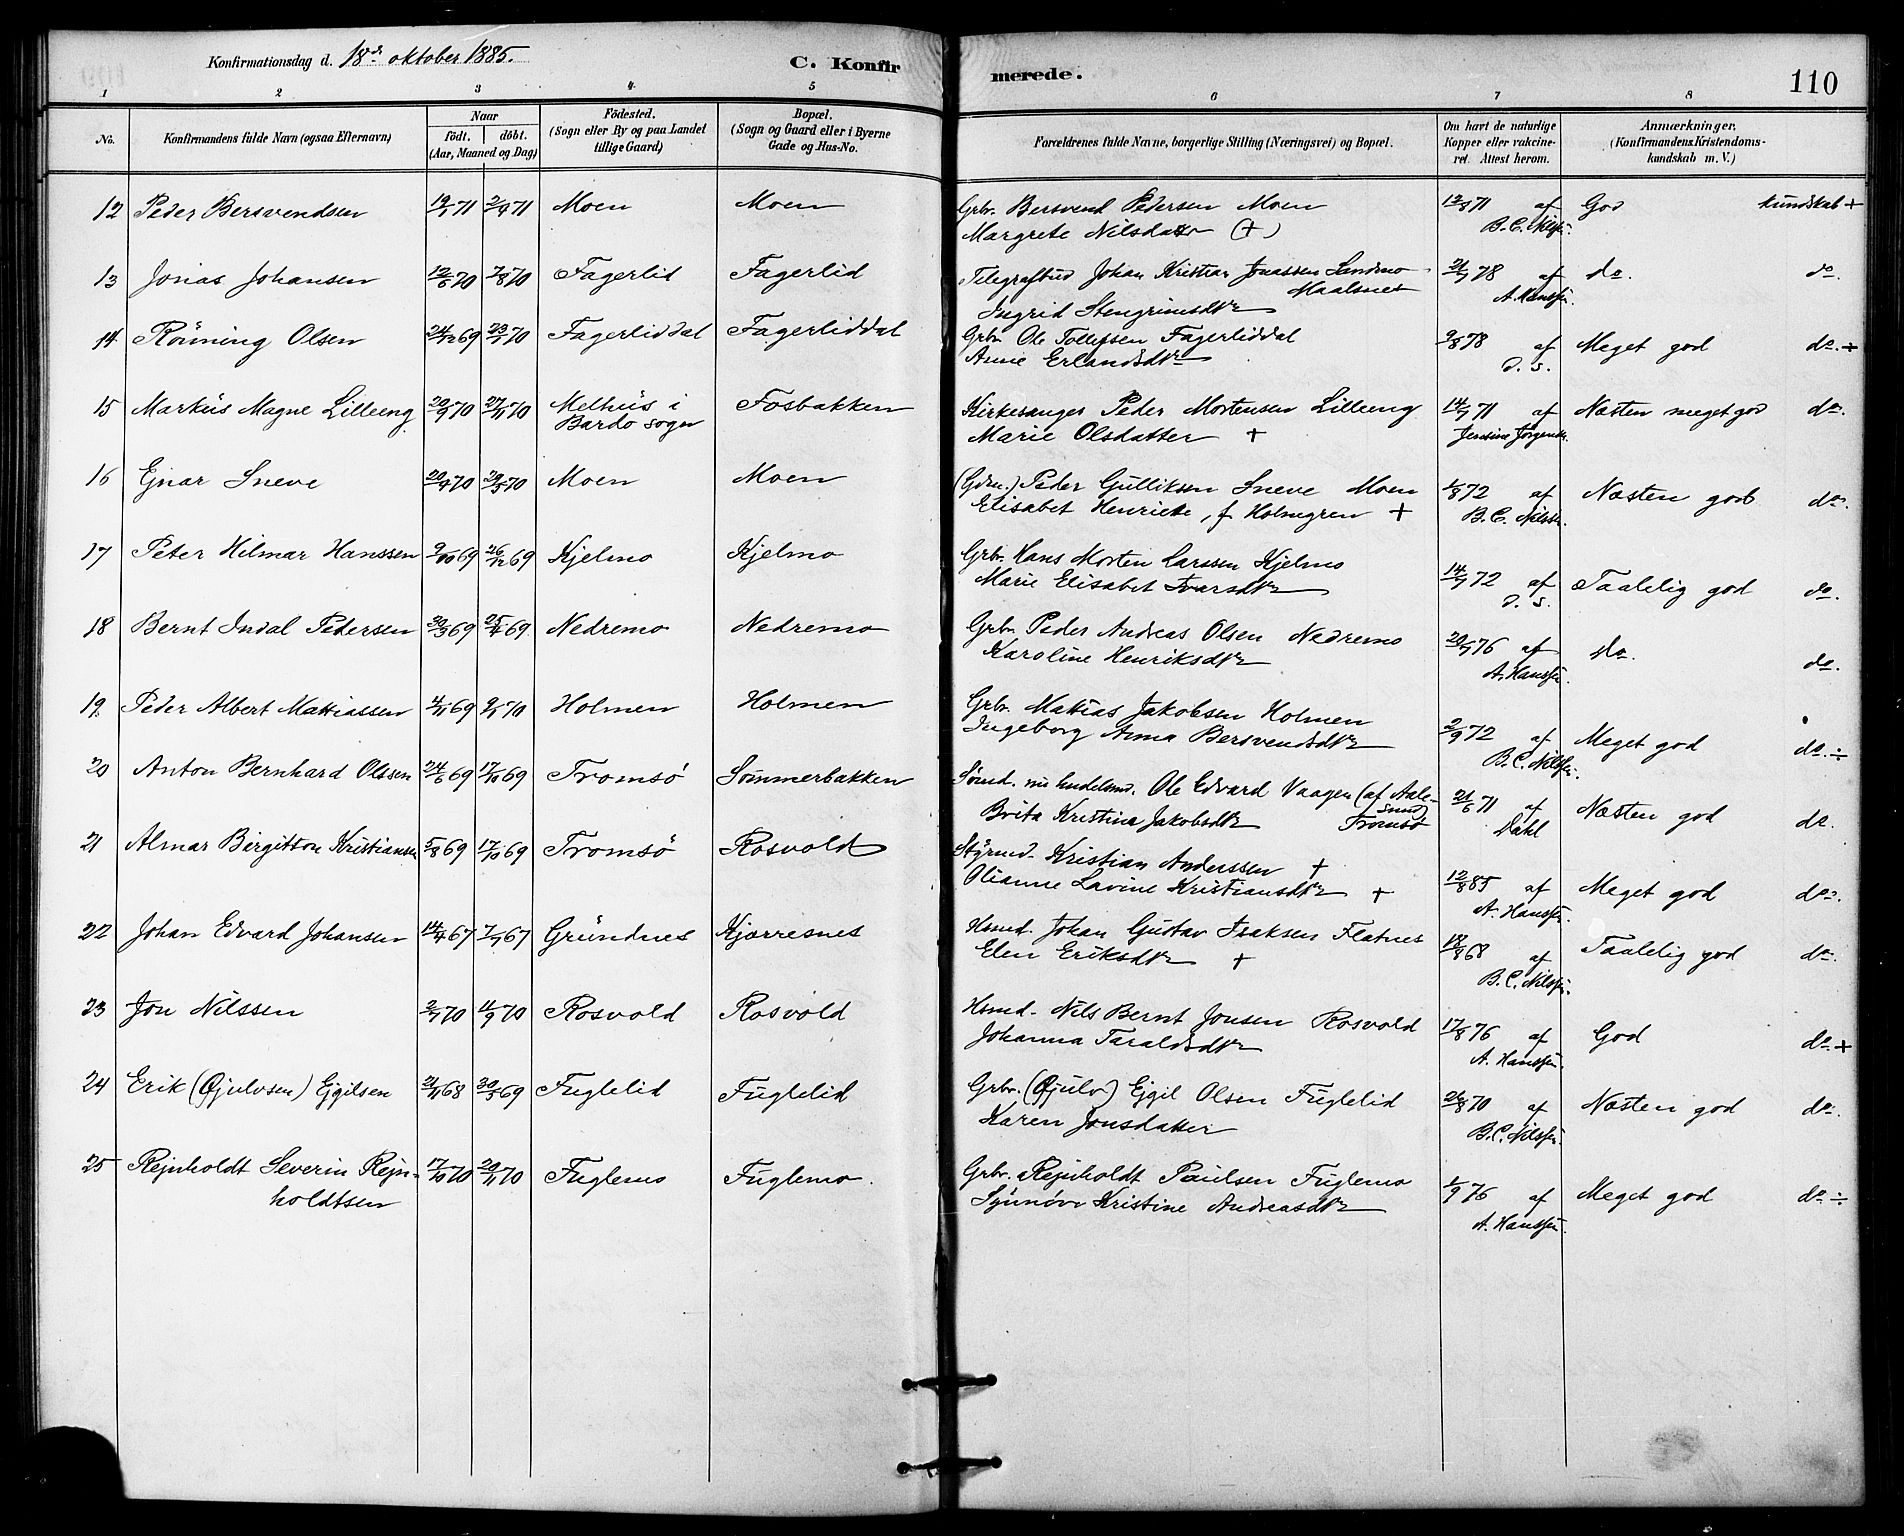 Konfirmationsdag d. 18de oktober 1885. C. Konfirmerede. 110
1 2 3 4 5 6 7 8
No. Konfirmandens fulde Navn (ogsaa Efternavn) Naar födt. döbt. (Aar, Maaned og Dag) Födested. (Sogn eller By og paa Landet tillige Gaard) Bopæl. (Sogn og Gaard eller i Byerne Gade og Hus-No. Forældrenes fulde Navne, borgerlige Stilling (Næringsvei) og Bopæl. Om havt de naturlige Kopper eller vakcineret. Attest herom. Anmærkninger. (Konfirmandens Kristendomskundskab m. V.)
12 Peder Bersvendsen 19/1 71 2/4 71 Moen Moen Grbr. Bersvend Pedersen Moen 13/8 71 af God kundskab +
Margrete Nilsdatter (+) B. C. Nilssen.
13 Jonas Johansen 12/6 70 7/8 70 Fagerlid Fagerlid Telegrafbud Johan Kristian Jonassen Sandmo 21/7 78 af do. do.
Maalsnes A. Hanssen.
Ingrid Stengrimsdtr
14 Rönning Olsen 24/12 69 23/1 70 Fagerliddal Fagerliddal Grbr. Ole Tollefsen Fagerliddal 9/8 78 af Meget god do. +
Anne Erlandsdtr d. s.
15 Markus Magne Lilleeng 20/9 70 27/11 70 Melhus i Bardo sogn Fosbakken Kirkesanger Peder Mortensen Lilleeng 14/7 71 af Næsten meget god do.
Marie Olsdatter + Jensine Jörgensdr.
16 Ejnar Sneve 20/4 70 29/5 70 Moen Moen (Gdm.) Peder Gulliksen Sneve Moen 1/8 72 af Næsten god do.
Elisabet Henriette, f. Holmgren + B. C. Nilssen.
17 Peter Hilmar Hanssen 9/10 69 26/12 69 Kjelmo Kjelmo Grbr. Hans Morten Larssen Kjelmo 14/7 72 af Taalelig god do.
Marie Elisabet Ivarsdtr d. s.
18 Bernt Indal Pedersen 30/3 69 25/4 69 Nedremo Nedremo Grbr. Peder Andreas Olsen Nedremo 20/7 76 af do. do.
Karoline Henriksdtr A. Hanssen.
19. Peder Albert Mattiassen 4/11 69 9/1 70 Holmen Holmen Grbr. Matias Jakobsen Holmen 2/9 72 af Meget god do. ÷
Ingeborg Anna Bersvendsdtr B. C. Nilssen.
20 Anton Bernhard Olssen 24/6 69 17/10 69 Tromsö Sommerbakken Sömd. nu handelsmd. Ole Edvard Vaagen (af Aalesund) 21/6 71 af Næsten god do.
Brita Kristina Jakobsdtr Tromsö Dahl
21 Almar Birgitton Kristiansen 5/8 69 17/10 69 Tromsö Rosvold Styrmd. Kristian Anderssen + 12/8 85 af Meget god do.
Olianne Lavine Kristiansdtr + A. Hanssen.
22 Johan Edvard Johansen 14/4 67 7/7 67 Grundnes Kjærresnes Hsmd. Johan Gustav Isaksen Flatnes 18/8 68 af Taalelig god do.
Elen Eriksdtr + B. C. Nilssen.
23 Jon Nilssen 2/7 70 11/9 70 Rosvold Rosvold Hsmd. Nils Bernt Jonsen Rosvold 17/8 76 af God do. +
Johanna Taraldsdtr A. Hanssen.
24 Erik (Öjulvsen) Ejgilsen 21/11 68 30/5 69 Fuglelid Fuglelid Grbr. (Öjulv) Ejgil Olsen Fuglelid 26/8 70 af Næsten god do.
Karen Jonsdatter B. C. Nilssen.
25 Rejnholdt Severin Rejnholdtsen 17/10 70 20/11 70 Fuglemo Fuglemo. Grbr. Rejnholdt Paulsen Fuglemo 1/9 76 af Meget god do. ÷
Synnöve Kristine Andreasdtr A. Hanssen.